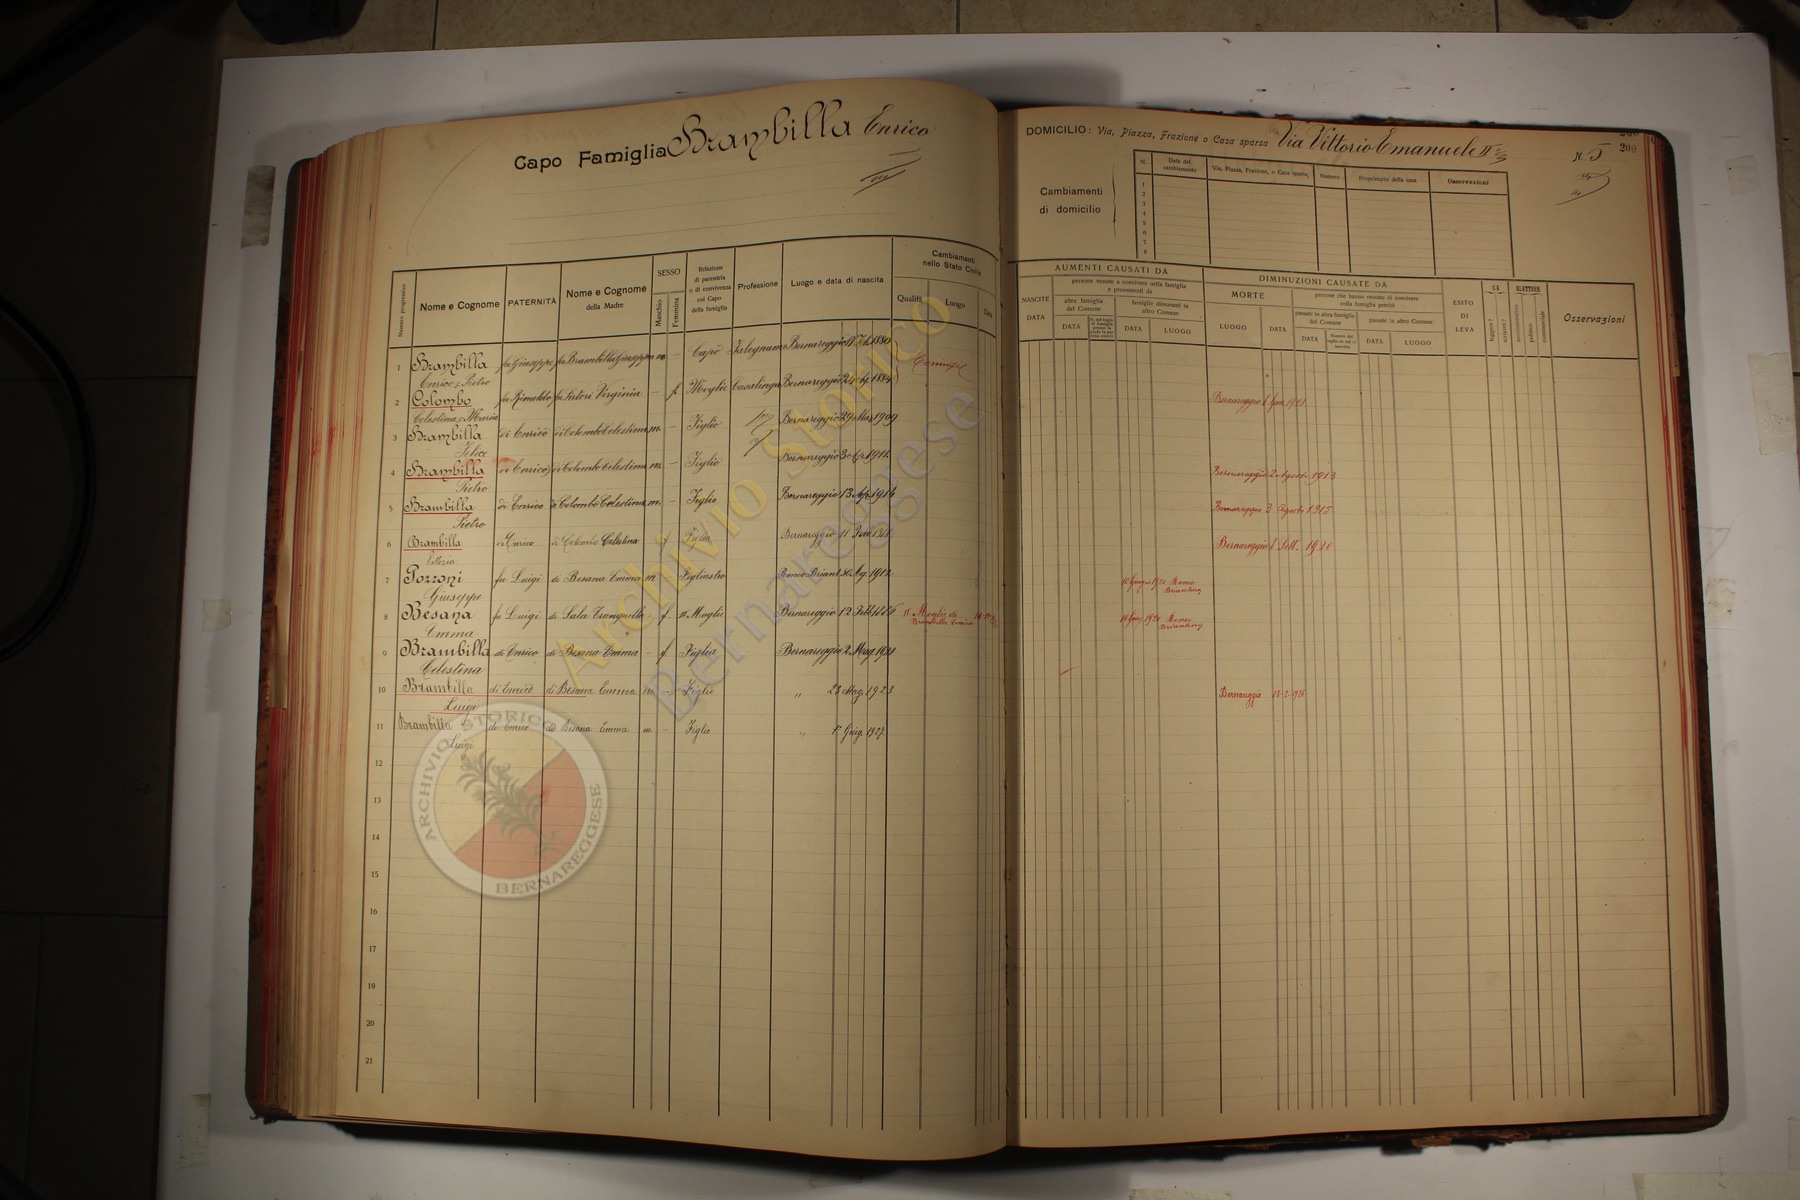 Capo Famiglia Brambilla Enrico
Nome e Cognome
PATERNITÀ
Nome e Cognome
della Madre
SESSO
Maschio
Femmina
Relazione
di parentela
o di convivenza
col Capo
della famiglia
Professione
Luogo e data di nascita
Cambiamenti
nello Stato Civile
Qualità
Luogo
Data
Numero progressivo
1 Brambilla fu Giuseppe fu Brambilla Giuseppa m. — Capo Falegname Bernareggio 1880
Enrico Pietro
2 Colombo fu Rinaldo fu Sertori Virginia — f. Moglie Casalinga Bernareggio 24 1884
Celestina Maria
3 Brambilla di Enrico di Colombo Celestina m. — Figlio Bernareggio 29 Mar. 1909
Felice
4 Brambilla di Enrico di Colombo Celestina m. — Figlio Bernareggio
Pietro
5 Brambilla di Enrico di Colombo Celestina m. — Figlio Bernareggio 13 Ap. 1914
Pietro
6 Brambilla di Enrico di Colombo Celestina Bernareggio 11
Vittoria
7 Pozzoni fu Luigi di Besana Emma m Figliastro Ronco Briant. 30 Ag. 1912
Giuseppe
8 Besana fu Luigi di Sala Tranquilla f. II Moglie Bernareggio 12 Febb. II Moglie di
Brambilla Enrico
Emma
9 Brambilla di Enrico di Besana Emma — f. Figlia Bernareggio 2 Mag.
Celestina
10 Brambilla di Enrico di Besana Emma m. — Figlio „ 23 Mag. 1923
Luigi
11 Brambilla di Enrico di Besana Emma m. — Figlio „ 1° Giug. 1927
Luigi
12
13
14
15
16
17
18
19
20
21
DOMICILIO: Via, Piazza, Frazione o Casa sparsa Via Vittorio Emanuele II N. 5
200
Cambiamenti
di domicilio
N.
Data del
cambiamento
Via, Piazza, Frazione, o Casa sparsa,
Numero
Proprietario della casa
Osservazioni
1
2
3
4
5
6
7
8
AUMENTI CAUSATI DA
DIMINUZIONI CAUSATE DA
NASCITE
DATA
persone venute a convivere nella famiglia
e provenienti da
altra famiglia
del Comune
famiglie dimoranti in
altro Comune
DATA
DATA
LUOGO
MORTE
LUOGO
DATA
persone che hanno cessato di convivere
nella famiglia perchè
passate in altra famiglia
del Comune
passate in altro Comune
DATA
DATA
LUOGO
ESITO
DI
LEVA
SA
leggere?
scrivere?
ELETTORE
amministrativo
politico
commerciale
Osservazioni
Bernareggio 1921
Bernareggio 2 Agosto 1913
Bernareggio 3 Agosto 1915
Bernareggio Sett. 1920
10 Giugno 1920 Ronco
Briantino
1920 Ronco
Briantino
Bernareggio 13-2-1926
Archivio Storico
Bernareggese
ARCHIVIO STORICO
BERNAREGGESE